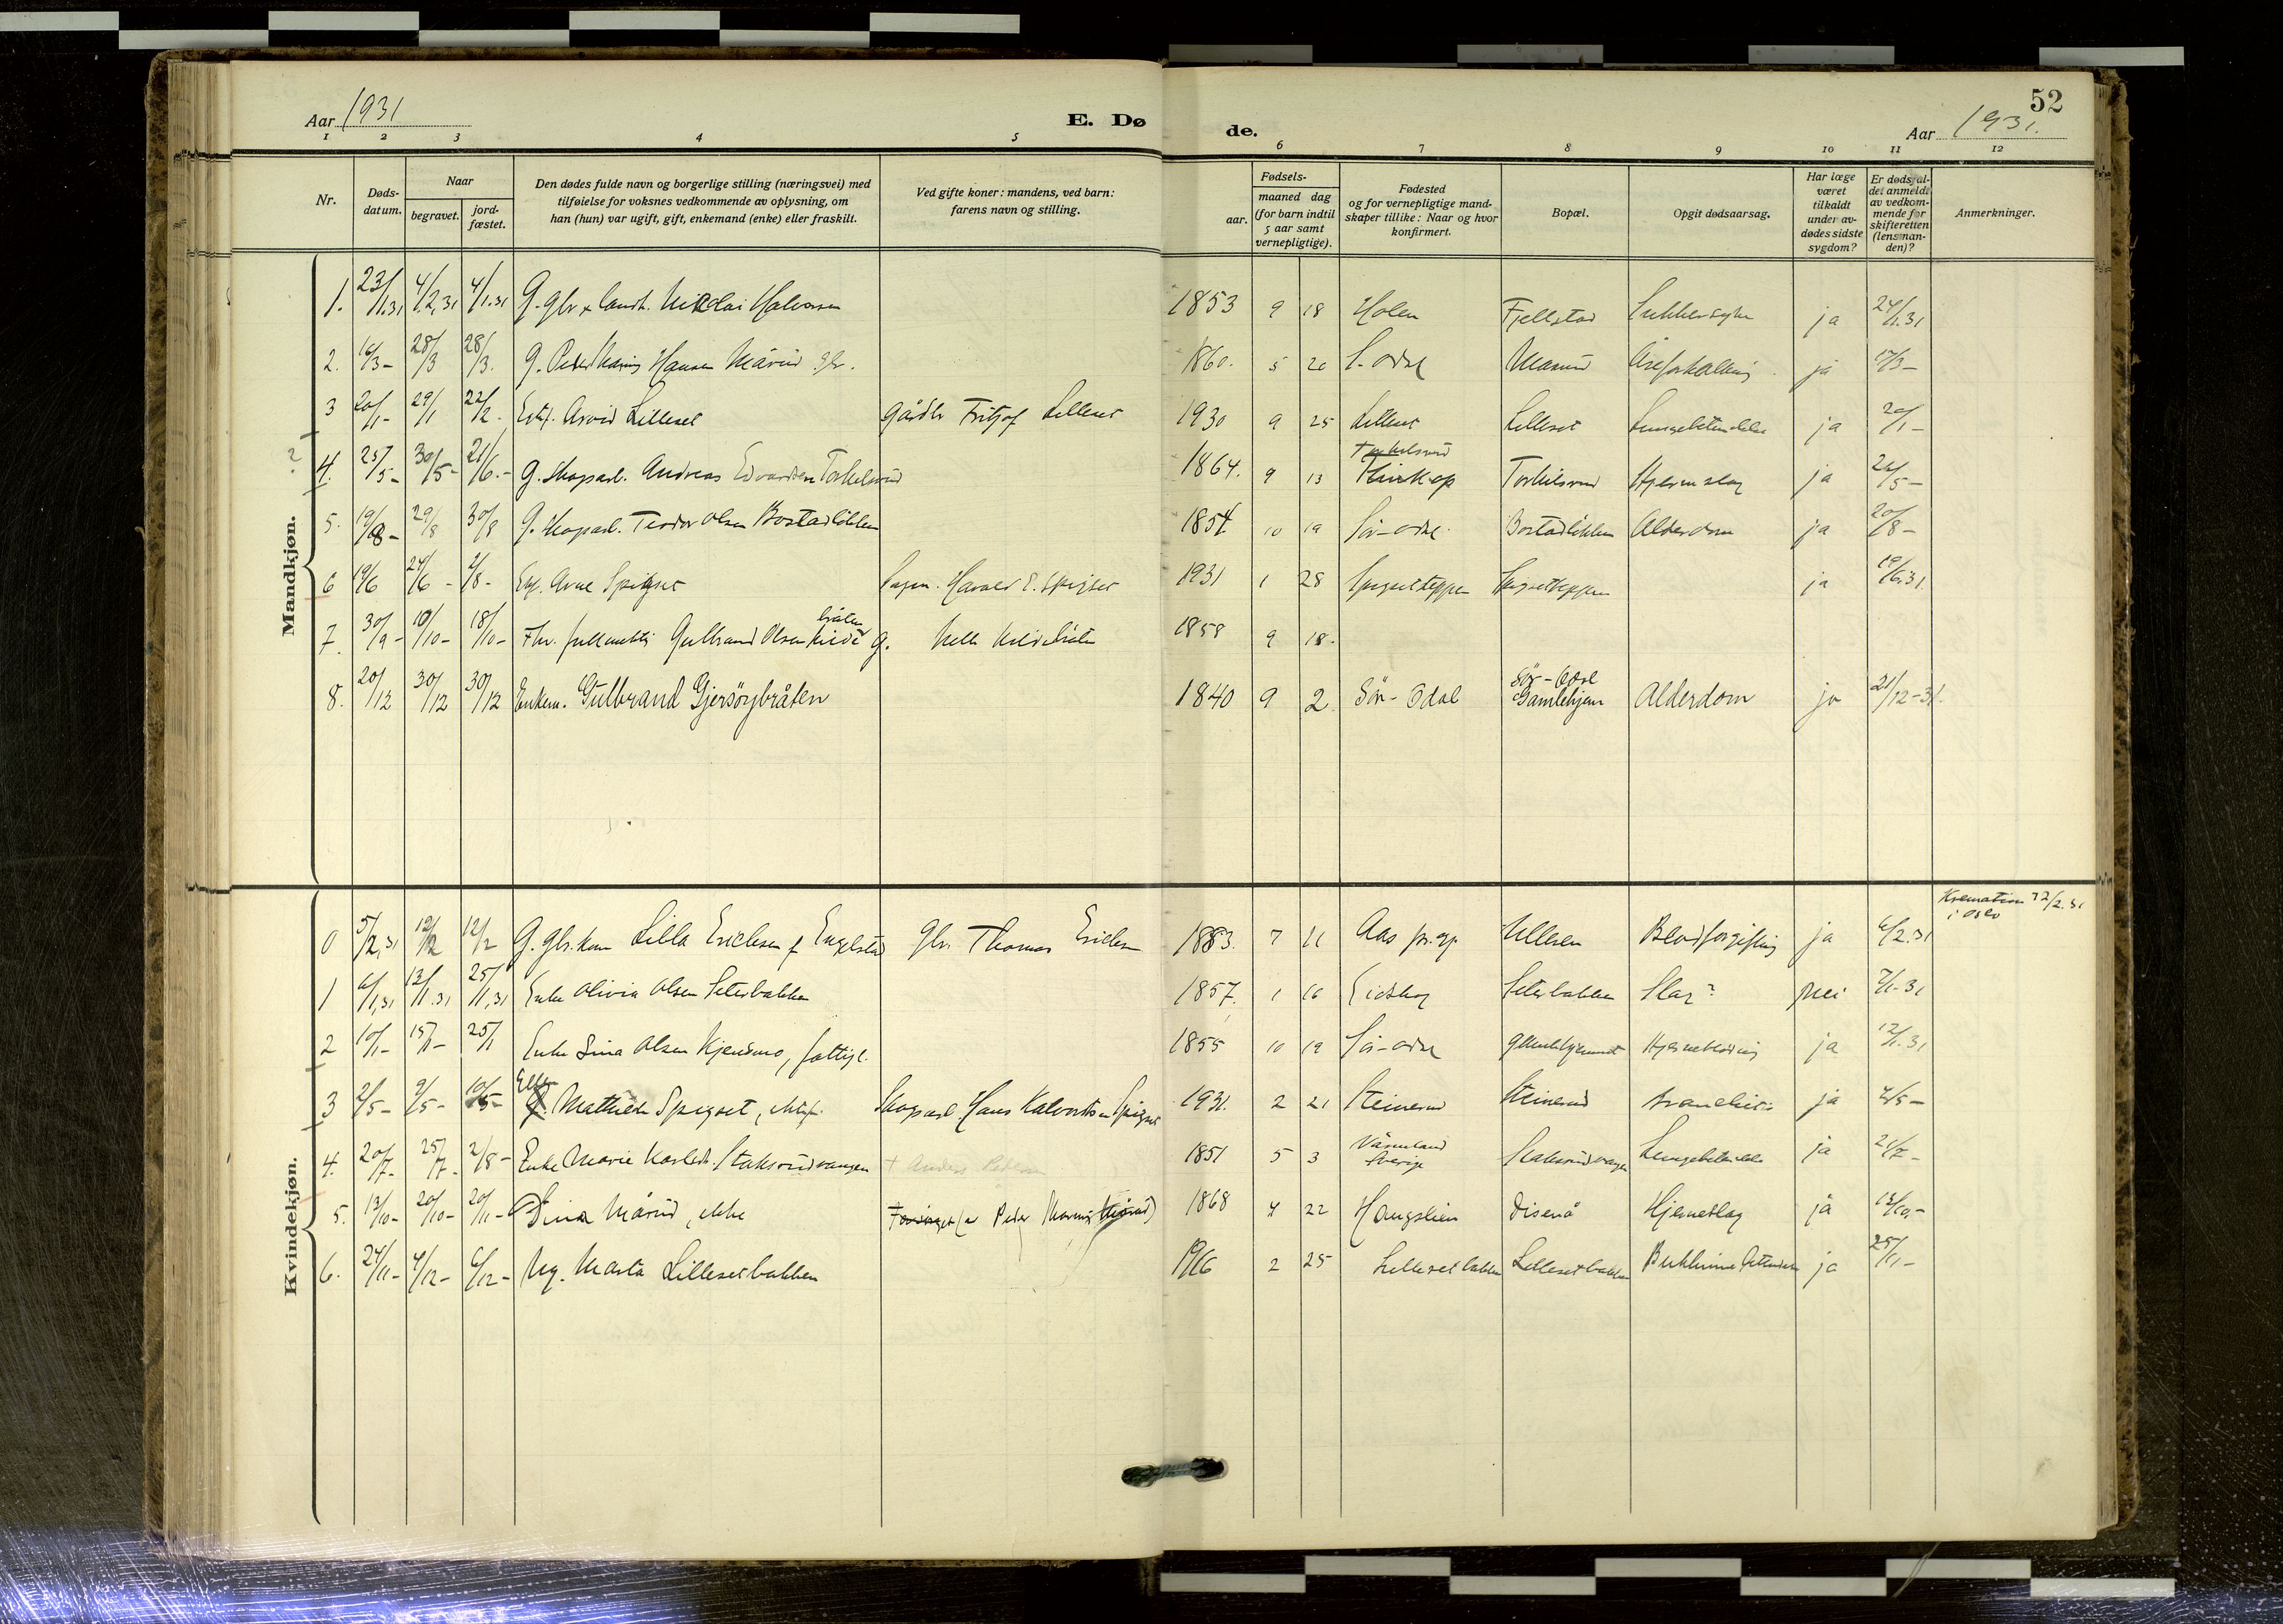 Aar 1931
E. Dø
de.
52
Aar 1931.
1 2 3 4 5 6 7 8 9 10 11 12
Nr.
Døds-
datum.
Naar
begravet.
jord-
fæstet.
Den dødes fulde navn og borgerlige stilling (næringsvei) med
tilføielse for voksnes vedkommende av oplysning, om
han (hun) var ugift, gift, enkemand (enke) eller fraskilt.
Ved gifte koner: mandens, ved barn:
farens navn og stilling.
Fødsels-
aar.
maaned dag
(for barn indtil
5 aar samt
vernepligtige).
Fødested
og for vernepligtige mand-
skaper tillike: Naar og hvor
konfirmert.
Bopæl.
Opgit dødsaarsag.
Har læge
været
tilkaldt
under av-
dødes sidste
sygdom?
Er dødsfal-
det anmeldt
av vedkom-
mende for
skifteretten
(lensman-
den)?
Anmerkninger.
Mandkjøn.
1. 23/1.31 4/2.31 4/1.31 G. gbr Nikolai Halvorsen 1853 9 18 Holen Fjellstad Sukkersyke ja 24/1.31
2. 16/3- 28/3 28/3. G. Peder Hansen Mårud gbr. 1860. 5 20 S. Odal Maarud Åreforkalkning ja 17/3-
3 20/1- 29/1 22/2. Arvid Lilleset Gårdbr Fritjof Lilleset 1930 9 25 Lilleset Lilleset Lungebetendelse ja 20/1-
? 4. 25/5- 30/5- 21/6.- G. Skogsarb. Andreas Edvardsen Torkelsrud 1864. 9 13 Torkelsrud Torkelsrud Hjerneslag ja 26/5-
5. 19/8- 29/8 30/8 G. Skogsarb. Teodor Olsen Bostadløkken 1854. 10 19 Sör-Odal Bostadløkken Alderdom ja 20/8-
6 19/6 24/6- 2/8- Arne Spigset Harald E. Spigset 1931 1 28 Spigseteppen Spigseteppen ja 19/6.31
7. 30/9- 10/10- 18/10- Gulbrand Olsen Kilde bråten G. 1858 9 18.
8. 20/12 30/12 30/12 Enkem. Gulbrand Gjersöybråten 1840 9 2 Sör-Odal Sör-Odal Gamlehjem Alderdom ja 21/12-31.
Kvindekjøn.
Kremation 12/2.31
i Oslo
0 5/2.31 12/2 12/2 G. gbr.kone Lilla Erichsen f Engelstad Gbr. Thomas Erichsen 1883. 7 11 Aas pr.gj. Ullern Blodforgiftning ja 6/2.31
1 6/1.31 13/1.31 25/1.31 Enke Olivia Olsen Seterbakken 1857. 1 16 Eidskog Seterbakken Slag? nei 7/1-31
2 10/1- 15/1- 25/1 Enke Lina Olsen Kjensmo, fattigl. 1855 10 19 Sör-Odal Gamlehjemmet Hjerneblödning ja 12/1.31
3 2/5- 9/5- 10/5- Ellen Mathilde Spigset, Skogsarb Hans Spigset 1931. 2 21 Steinerud Steinerud Bronchitis ja 4/5-
4. 20/7- 25/7- 2/8- Enke Marie Karlsdt. Staksrudvangen + Anders Pedersen 1851 5 3 Värmland Sverige Staksrudvangen Lungebetendelse ja 21/7-
5. 13/10- 20/10- 20/11- Dina Mårud, enke Peder Mårud) 1868 4 22 Haugslien Disenå Hjerneslag ja 13/10.-
6. 24/11- 4/12- 6/12- Marta Lillesetbakken 1916 2 25 Lillesetbakken Lillesetbakken ja 25/11-